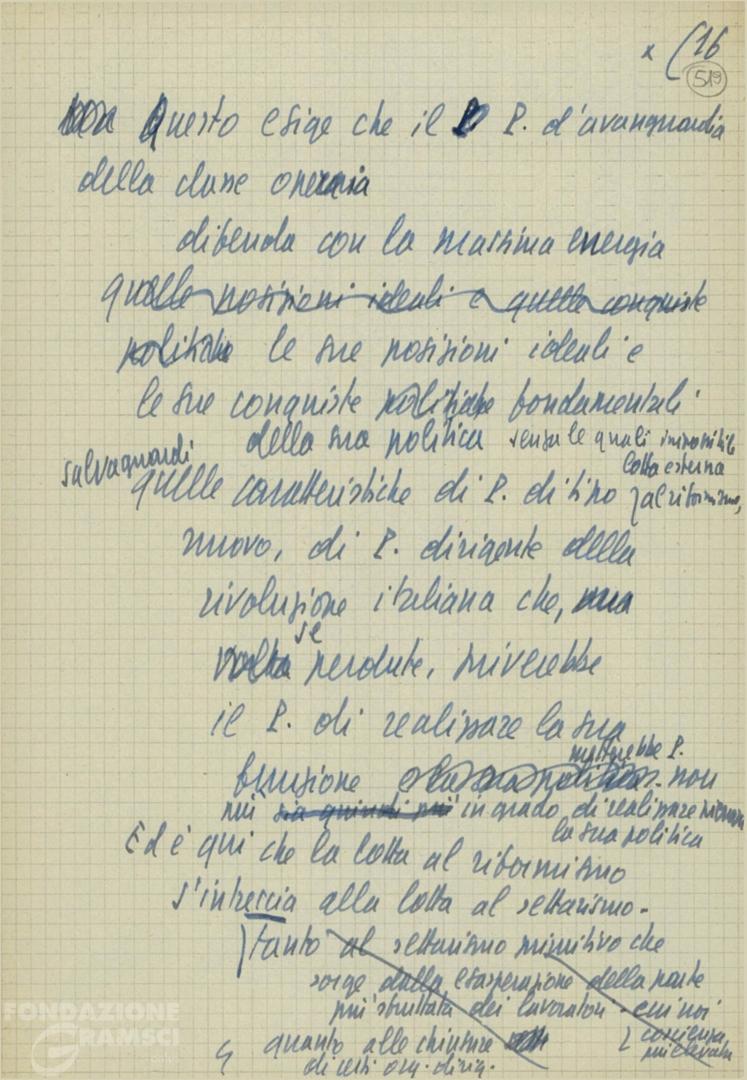 x (16
519
Questo esige che il P. d'avanguardia
della classe operaia
difenda con la massima energia
quelle posizioni ideali e quelle conquiste
politiche le sue posizioni ideali e
le sue conquiste politiche fondamentali
della sua politica senza le quali impossibile
lotta esterna
salvaguardi
quelle caratteristiche di P. di tipo al riformismo,
nuovo, di P. dirigente della
rivoluzione italiana che, una
se
volta perdute, priverebbe
il P. di realizzare la sua
metterebbe P.
funzione e la sua politica. non
più sia quindi più in grado di realizzare
la sua politica
Ed è qui che la lotta al riformismo
s'intreccia alla lotta al settarismo.
tanto al settarismo primitivo che
sorge dalla esasperazione della parte
più sfruttata dei lavoratori - cui noi
coscienza
più elevata
quanto alle chiusure
di certi org. dirig.
FONDAZIONE
GRAMSCI